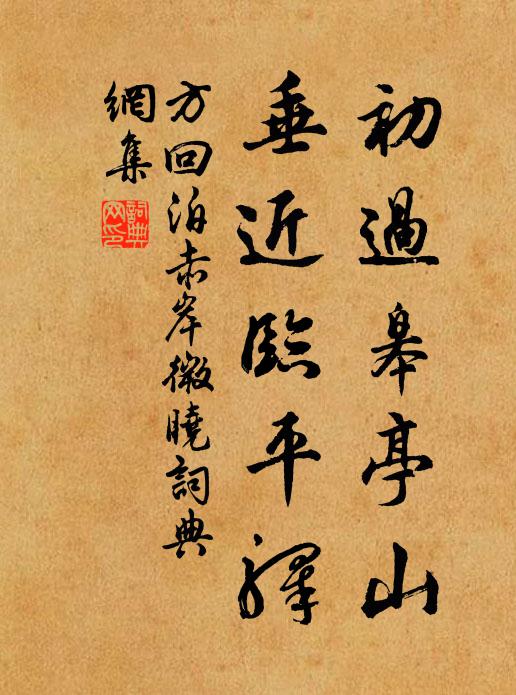 初過皋亭山
垂近臨平驛
方回泊赤岸微曉詞典
網集
詞典
网印